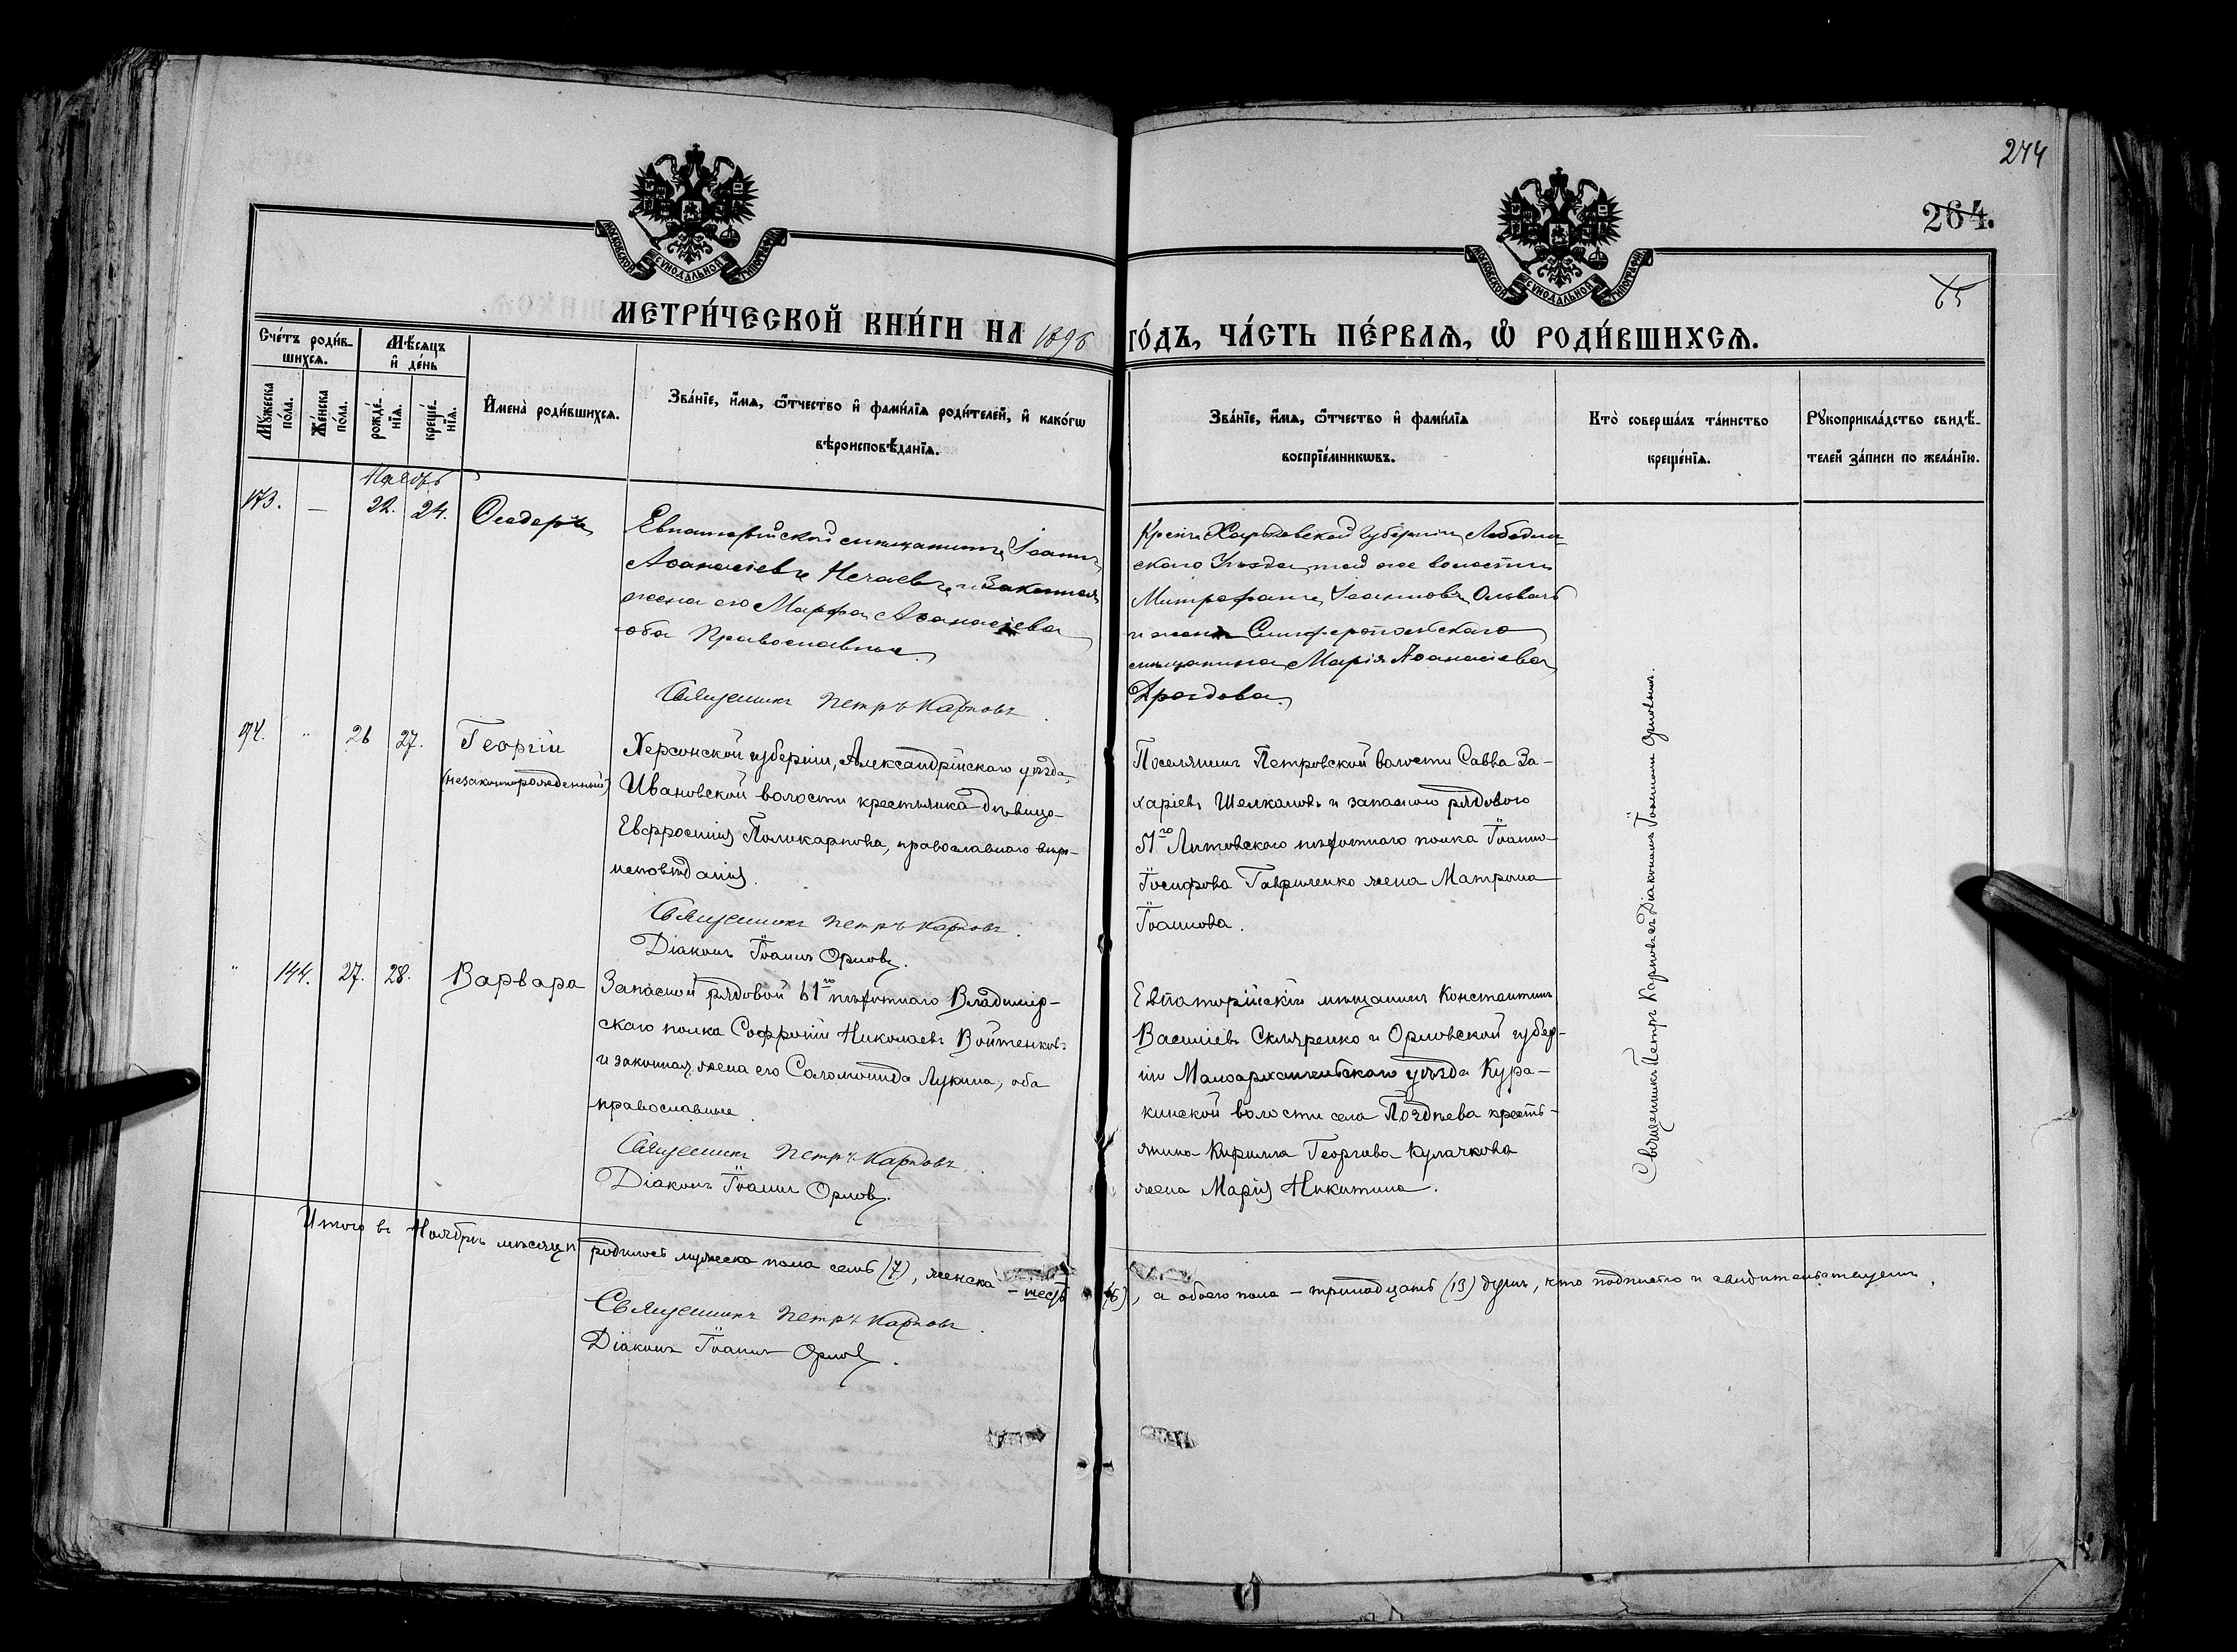 244
264.
65
МОСКОВСКОЙ СѴНОДАЛЬНОЙ ТИПОГРАФІИ
МОСКОВСКОЙ СѴНОДАЛЬНОЙ ТИПОГРАФІИ
МЕТРИ́ЧЕСКОЙ КНИ́ГИ НА 1896 ГО́ДЪ, ЧА́СТЬ ПЕ́РВАЯ, Ѿ РОДИ́ВШИХСЯ.
Сче́тъ роди́в-
шихся.
Мѣ́сяцъ
и҆ де́нь
Му́жеска
по́ла.
Же́нска
по́ла.
рожде́-
нїѧ.
креще́-
нїѧ.
И҆мена̀ роди́вшихся.
Зва́нїе, и҆́мѧ, ѻ҆́тчество и҆ фами́лїѧ роди́телей, и҆ како́гѡ
вѣроисповѣ́данїѧ.
Зва́нїе, и҆́мѧ, ѻ҆́тчество и҆ фами́лїѧ
воспрїе́мникѡвъ.
Кто̀ соверша́лъ та́инство
креще́нїѧ.
Рꙋкоприкла́дство свидѣ́-
телей за́писи по жела́нїю.
Ноябрь
173. — 22. 24. Ѳеодоръ
Евпаторійской мѣщанинъ Іоаннъ
Аѳанасіевъ Нечаевъ и законная
жена его Марфа Аѳанасіева
оба Православные.
Священникъ Петръ Карповъ.
Крест. Харьковской губерніи Лебедин-
скаго Уѣзда, той же волости
Митрофанъ Іоанновъ
и жена Симферопольскаго
мѣщанина Марія Аѳанасіева
Дроздова.
94. " 26 27. Георгій
(незаконнорожденный)
Херсонской губерніи, Александрійскаго уѣзда,
Ивановской волости крестьянка-дѣвица
Евфросинія Поликарпова, православнаго вѣро-
исповѣданія.
Священникъ Петръ Карповъ.
Діаконъ Іоаннъ Орловъ.
Поселянинъ Петровской волости Савва За-
харіевъ Шелкановъ и запаснаго рядового
51го Литовскаго пѣхотнаго полка Іоанна
Іосифова Гавриленко жена Матрона
Іоаннова.
" 144. 27. 28. Варвара
Запасной рядовой 61го пѣхотнаго Владимір-
скаго полка Софроній Николаевъ Войтенковъ
и законная жена его Саломонида Лукина, оба
православные.
Священникъ Петръ Карповъ.
Діаконъ Іоаннъ Орловъ.
Евпаторійскій мѣщанинъ Константинъ
Василіевъ Скляренко и Орловской губер-
ніи Малоархангельскаго уѣзда Кура-
кинской волости села Позднева кресть-
янина Кирилла Георгіева Кулачкова
жена Марія Никитина.
Священникъ Петръ Карповъ съ Діакономъ Іоанномъ Орловымъ.
Итого въ Ноябрѣ мѣсяцѣ родилось мужеска пола семь (7), женска — шесть (6), а обоего пола — тринадцать (13) душъ, что подписью и свидѣтельствуемъ.
Священникъ Петръ Карповъ.
Діаконъ Іоаннъ Орловъ.